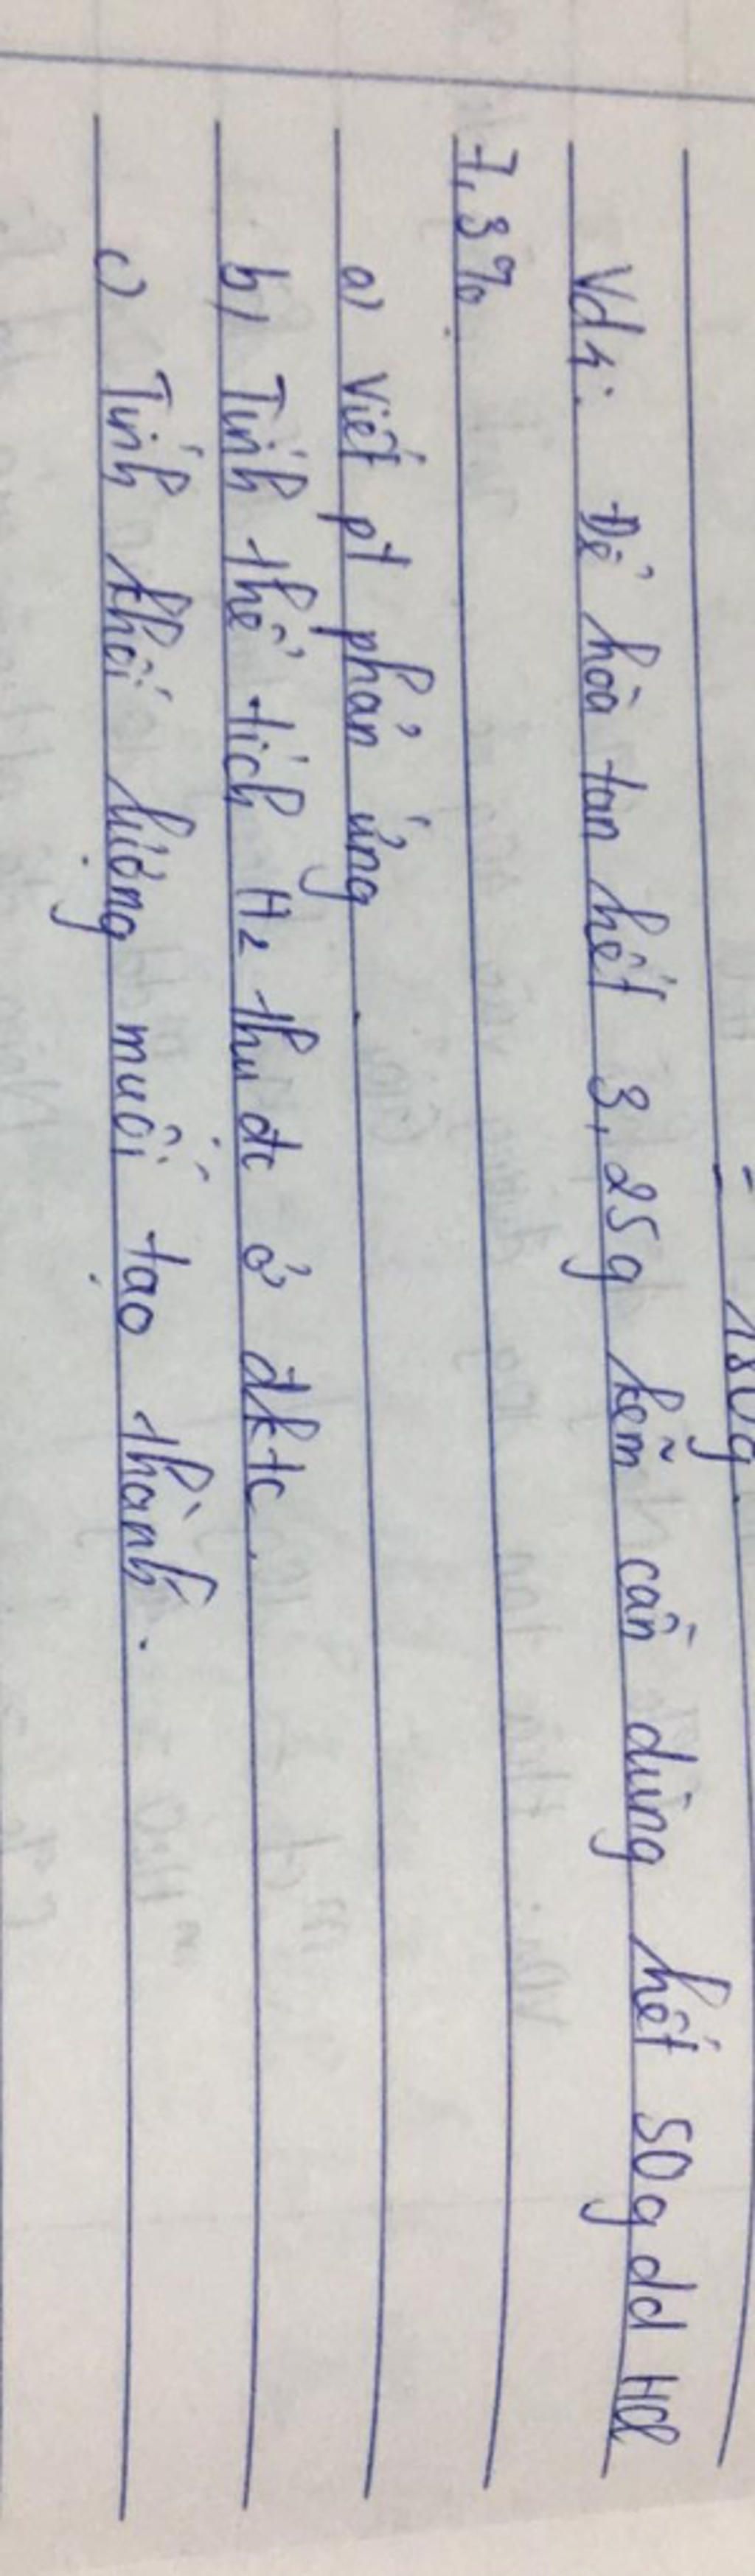 180g.
Vd4: Để hòa tan hết 3,25g kẽm cần dùng hết 50g dd HCl
7,3%.
a) Viết pt phản ứng.
b) Tính thể tích H₂ thu đc ở đktc.
c) Tính khối lượng muối tạo thành.